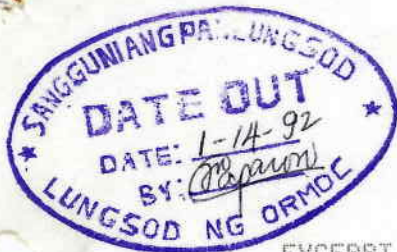 SANGGUNIANG PANLUNGSOD
DATE OUT
DATE: 1-14-92
BY:
LUNGSOD NG ORMOC